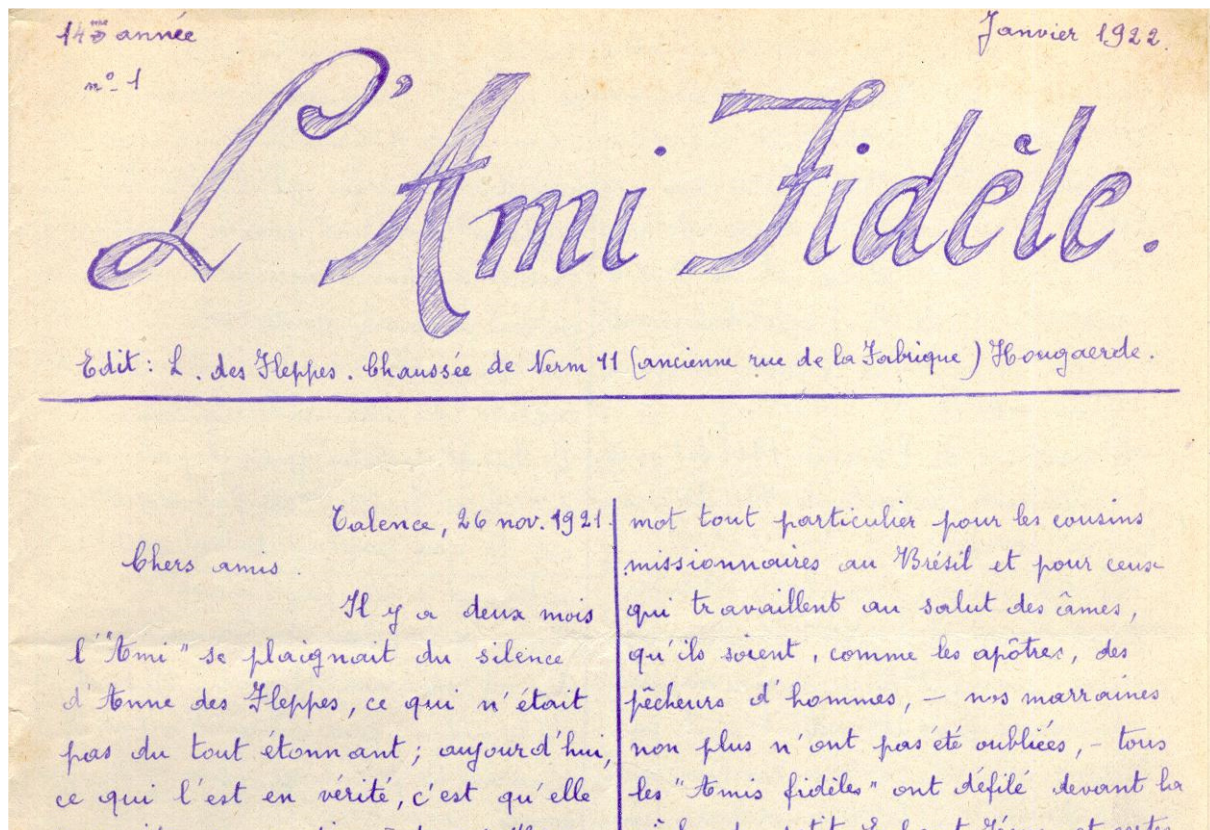 14me année
Janvier 1922.
n° 1
L'Ami Fidèle.
Edit : L. des Fleppes. Chaussée de Nerm 11 (ancienne rue de la Fabrique) Hougaerde.
Talence, 26 nov. 1921.
Chers amis.
Il y a deux mois
l'"Ami" se plaignait du silence
d'Anne des Fleppes, ce qui n'était
pas du tout étonnant ; aujourd'hui,
ce qui l'est en vérité, c'est qu'elle
mot tout particulier pour les cousins
missionnaires au Brésil et pour ceux
qui travaillent au salut des âmes,
qu'ils soient, comme les apôtres, des
pêcheurs d'hommes, – nos marraines
non plus n'ont pas été oubliées, – tous
les "Amis fidèles" ont défilé devant la